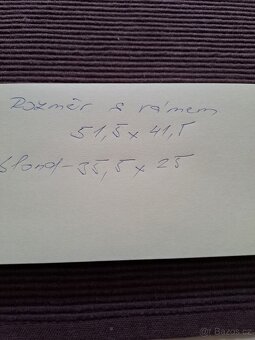 Rozměr s rámem
51,5 x 41,5
blond - 35,5 x 25
Bazos.cz